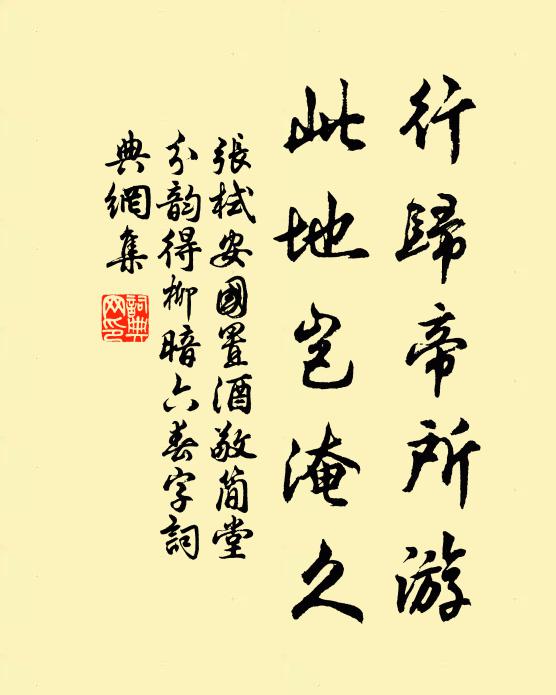 行歸帝所游
此地岂淹久
張栻安國置酒敬简堂
分韵得柳暗六春字詞
典網集
詞典网印